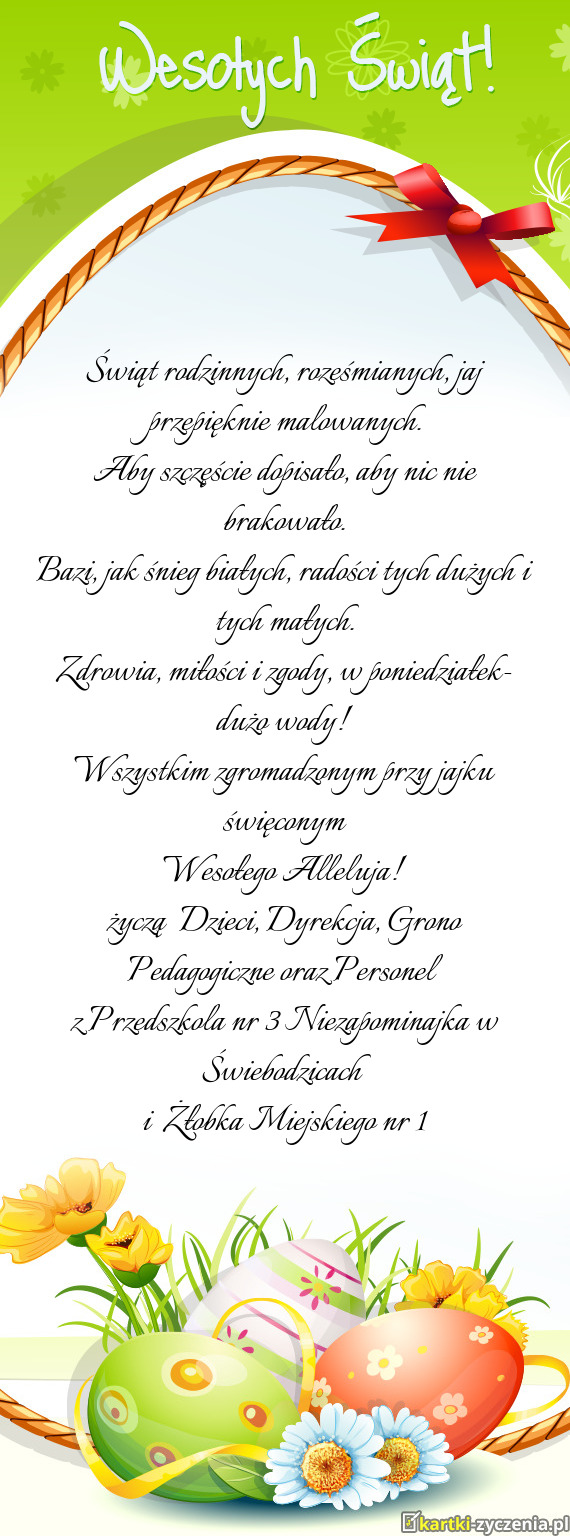 Wesołych Świąt!
Świąt rodzinnych, roześmianych, jaj
przepięknie malowanych.
Aby szczęście dopisało, aby nic nie
brakowało.
Bazi, jak śnieg białych, radości tych dużych i
tych małych.
Zdrowia, miłości i zgody, w poniedziałek-
dużo wody!
Wszystkim zgromadzonym przy jajku
święconym
Wesołego Alleluja!
życzą Dzieci, Dyrekcja, Grono
Pedagogiczne oraz Personel
z Przedszkola nr 3 Niezapominajka w
Świebodzicach
i Żłobka Miejskiego nr 1
kartki-zyczenia.pl